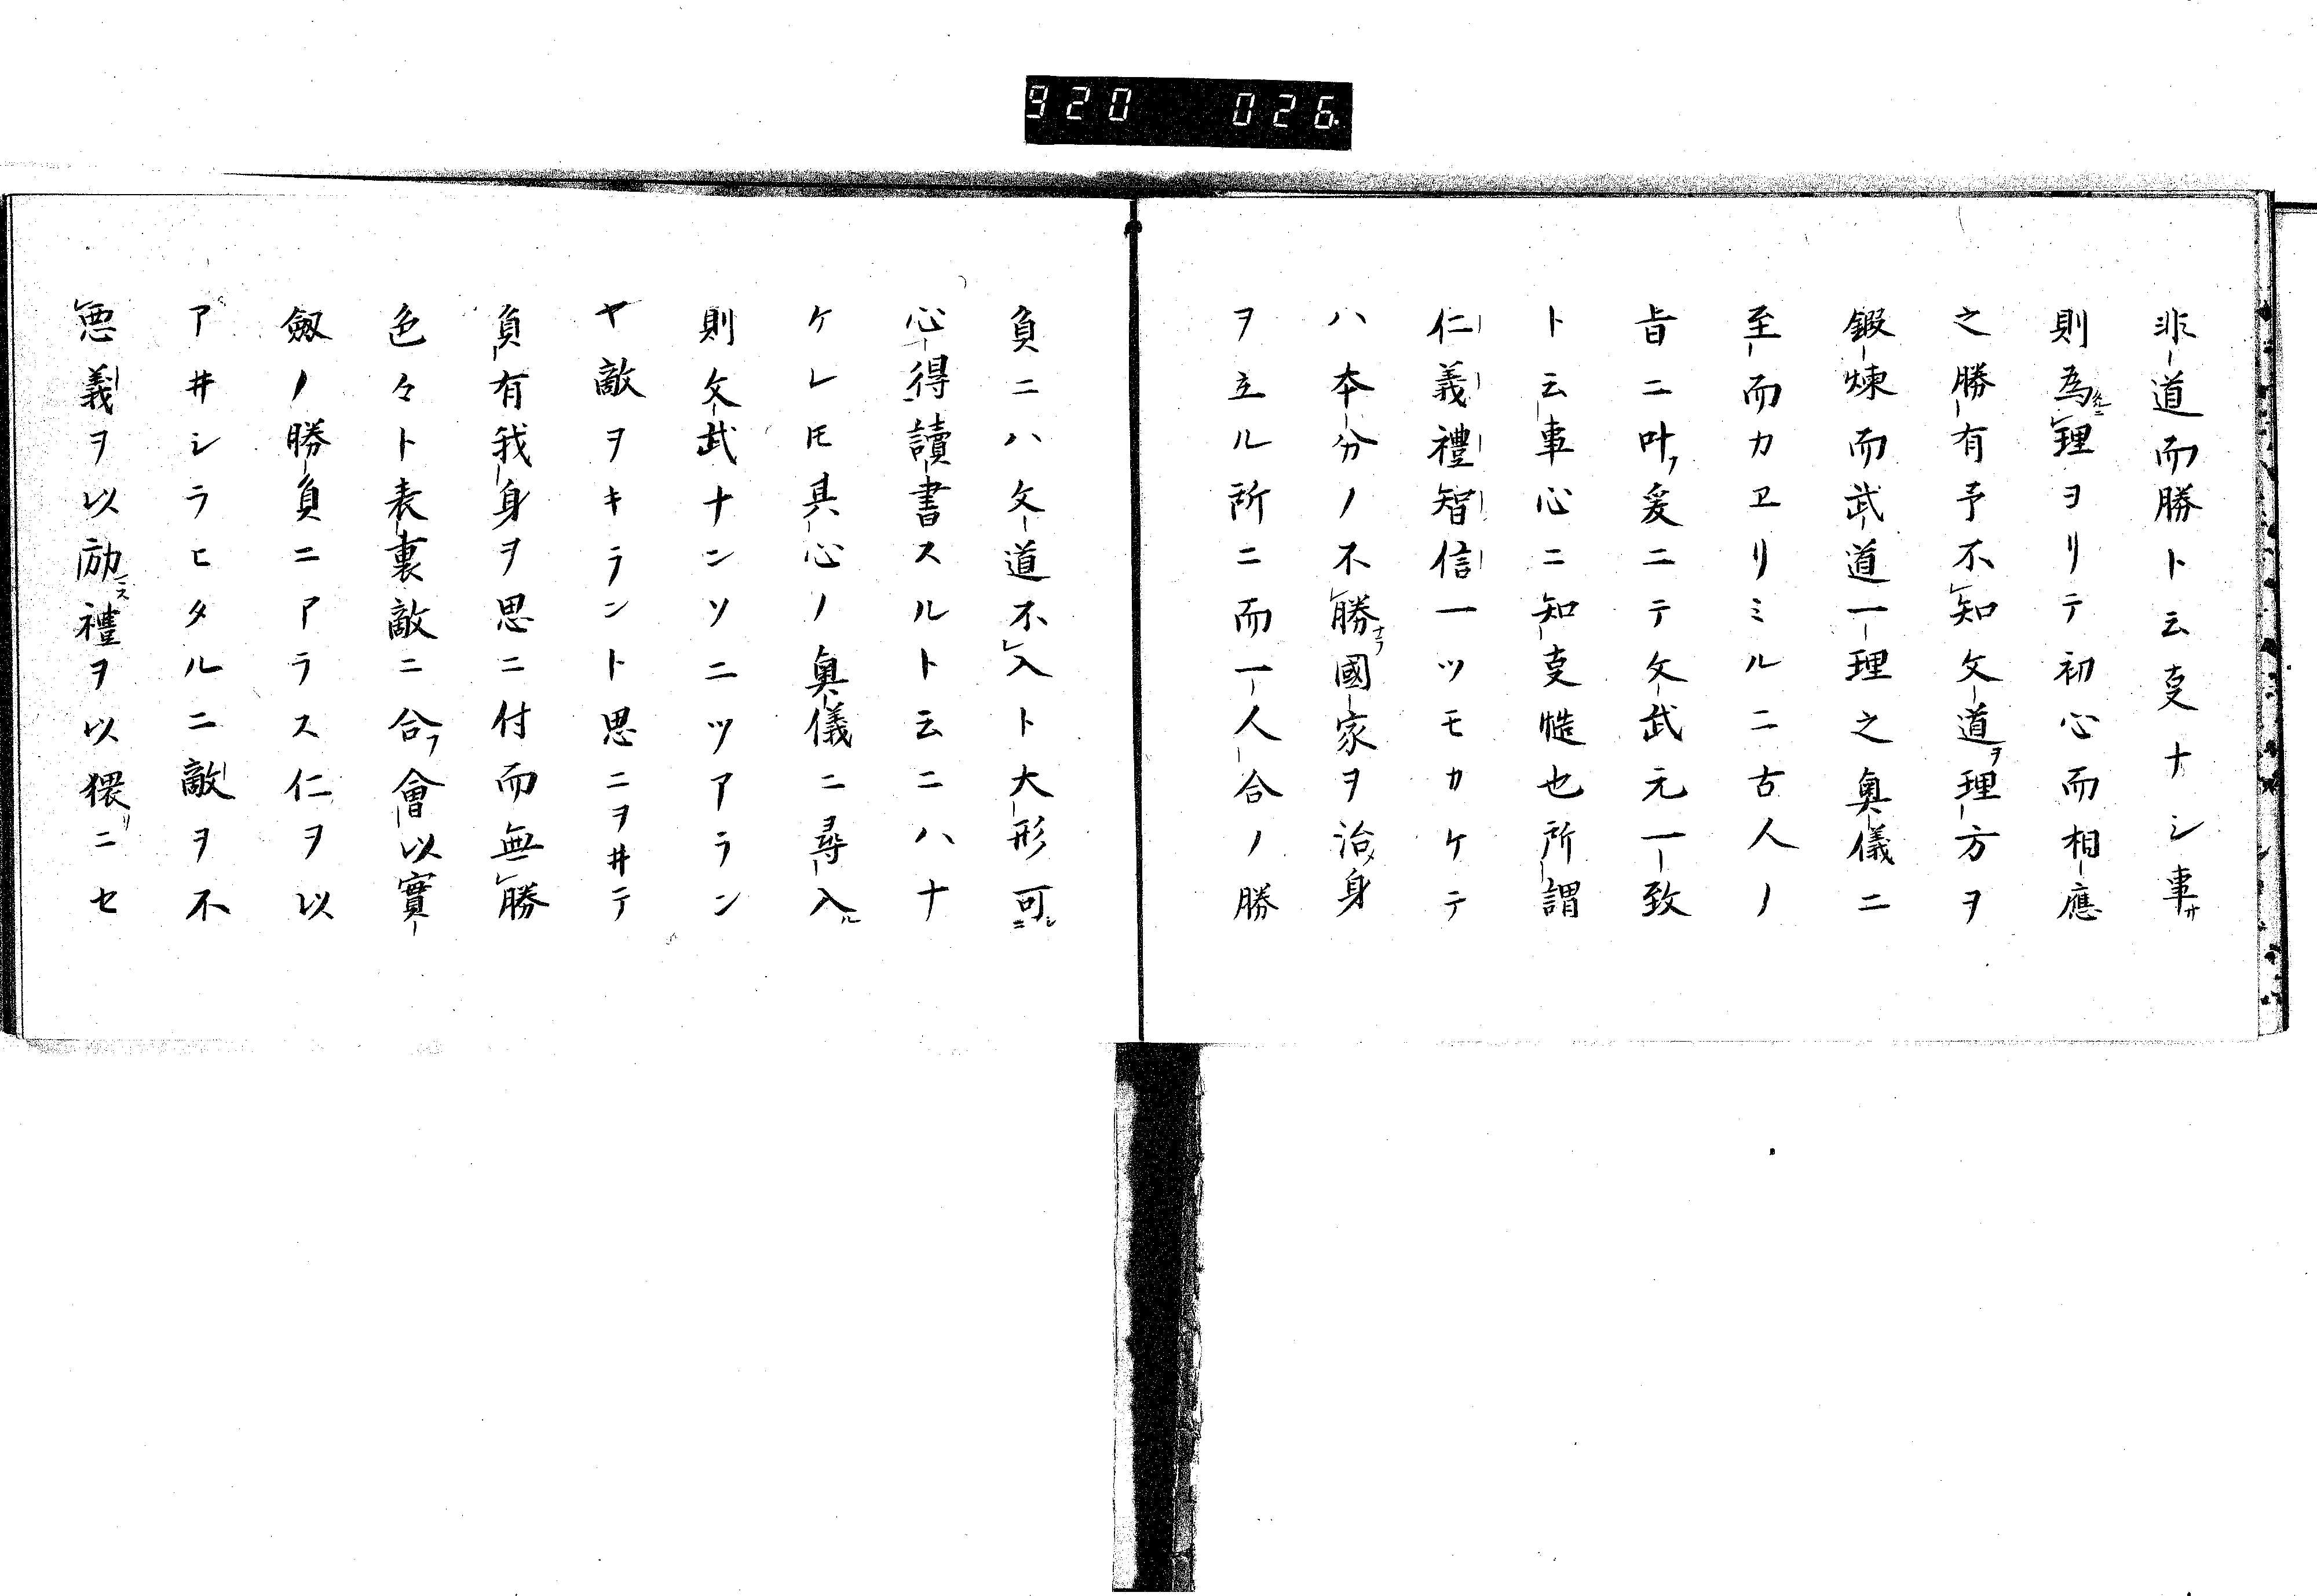 920 026
非道而勝ト云叓ナシ事サ
則為理ヲリテ初心而相應
之勝有予不知文道ヲ理方ヲ
鍛煉而武道一理之奥儀ニ
至而カヱリミルニ古人ノ
旨ニ叶フ爰ニテ文武元一致
ト云事心ニ知叓慥也所謂
仁義禮智信一ツモカケテ
ハ本分ノ不勝ナラ國家ヲ治身
ヲ立ル所ニ而一人合ノ勝
負ニハ文道不入ト大形可シニ
心得讀書スルト云ニハナ
ケレ𪜈其心ノ奥儀ニ尋入ル
則文武ナンソニツアラン
ヤ敵ヲキラント思ニヲ井テ
負有我身ヲ思ニ付而無勝
色々ト表裏敵ニ合フ會以實
劔ノ勝負ニアラス仁ヲ以
ア井シラヒタルニ敵ヲ不
悪義ヲ以励ミス禮ヲ以猥リニセ